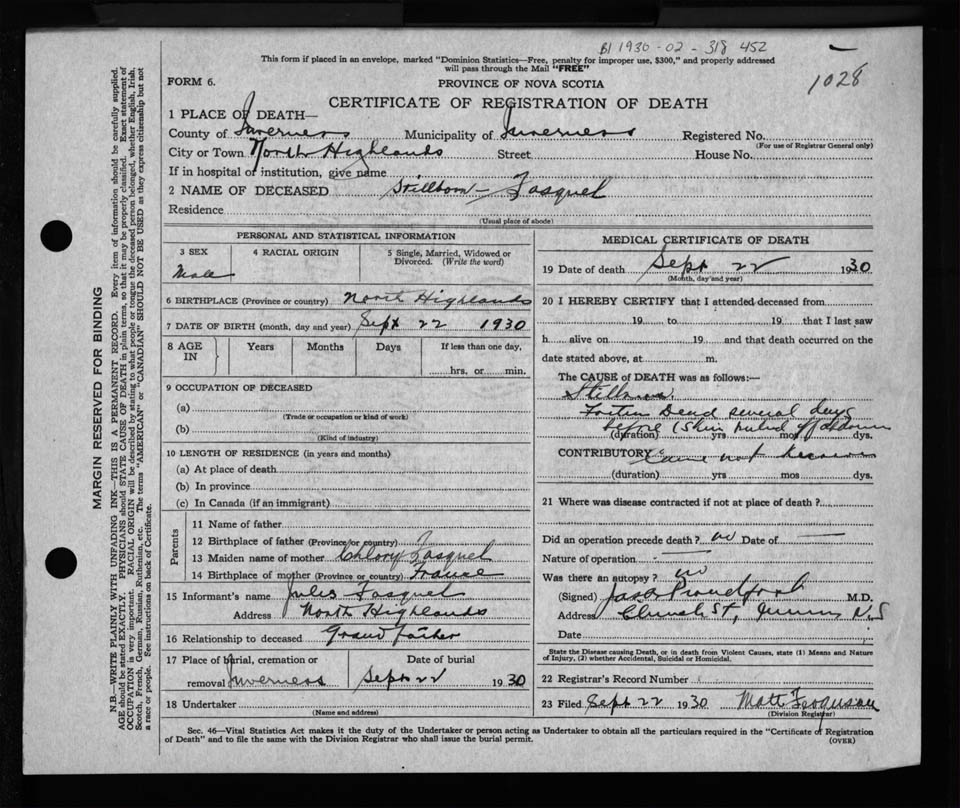 B1 1930-02-318 452
1028
This form if placed in an envelope, marked "Dominion Statistics—Free, penalty for improper use, $300," and properly addressed
will pass through the Mail "FREE"
FORM 6.
PROVINCE OF NOVA SCOTIA
CERTIFICATE OF REGISTRATION OF DEATH
1 PLACE OF DEATH—
County of Inverness Municipality of Inverness Registered No.
(For use of Registrar General only)
City or Town North Highlands Street House No.
If in hospital or institution, give name
2 NAME OF DECEASED Stillborn — Fasquel
Residence
(Usual place of abode)
PERSONAL AND STATISTICAL INFORMATION
3 SEX 4 RACIAL ORIGIN 5 Single, Married, Widowed or
Divorced. (Write the word)
Male
6 BIRTHPLACE (Province or country) North Highlands
7 DATE OF BIRTH (month, day and year) Sept 22 1930
8 AGE IN Years Months Days If less than one day,
hrs. or min.
9 OCCUPATION OF DECEASED
(a)
(Trade or occupation or kind of work)
(b)
(Kind of industry)
10 LENGTH OF RESIDENCE (in years and months)
(a) At place of death
(b) In province
(c) In Canada (if an immigrant)
Parents
11 Name of father
12 Birthplace of father (Province or country) ?
13 Maiden name of mother Chlory Fasquel
14 Birthplace of mother (Province or country) France
15 Informant's name Jules Fasquel
Address North Highlands
16 Relationship to deceased Grand father
17 Place of burial, cremation or Date of burial
removal Inverness Sept 22 1930
18 Undertaker
(Name and address)
MEDICAL CERTIFICATE OF DEATH
19 Date of death Sept 22 1930
(Month, day and year)
20 I HEREBY CERTIFY that I attended deceased from
19 to 19 that I last saw
h alive on 19 and that death occurred on the
date stated above, at m.
The CAUSE of DEATH was as follows:—
Stillborn
Foetus Dead several days
before (Skin
(duration) yrs mos dys.
CONTRIBUTORY Cause not known
(duration) yrs mos dys.
21 Where was disease contracted if not at place of death?
Did an operation precede death? no Date of —
Nature of operation —
Was there an autopsy? no
(Signed) Jas A Proudfoot M.D.
Address Church St, N.S
Date
State the Disease causing Death, or in death from Violent Causes, state (1) Means and Nature
of Injury, (2) whether Accidental, Suicidal or Homicidal.
22 Registrar's Record Number
23 Filed Sept 22 1930 Matt Ferguson
(Division Registrar)
Sec. 46—Vital Statistics Act makes it the duty of the Undertaker or person acting as Undertaker to obtain all the particulars required in the "Certificate of Registration
of Death" and to file the same with the Division Registrar who shall issue the burial permit.
(OVER)
MARGIN RESERVED FOR BINDING
N.B.—WRITE PLAINLY WITH UNFADING INK—THIS IS A PERMANENT RECORD. Every item of information should be carefully supplied.
AGE should be stated EXACTLY. PHYSICIANS should STATE CAUSE OF DEATH in plain terms, so that it may be properly classified. Exact statement of
OCCUPATION is very important. RACIAL ORIGIN will be described by stating to what people or tongue the deceased person belonged, whether English, Irish,
Scotch, French, German, Russian, Ruthenian, etc. The terms "AMERICAN" or "CANADIAN" SHOULD NOT BE USED as they express citizenship but not
a race or people. See instructions on back of Certificate.